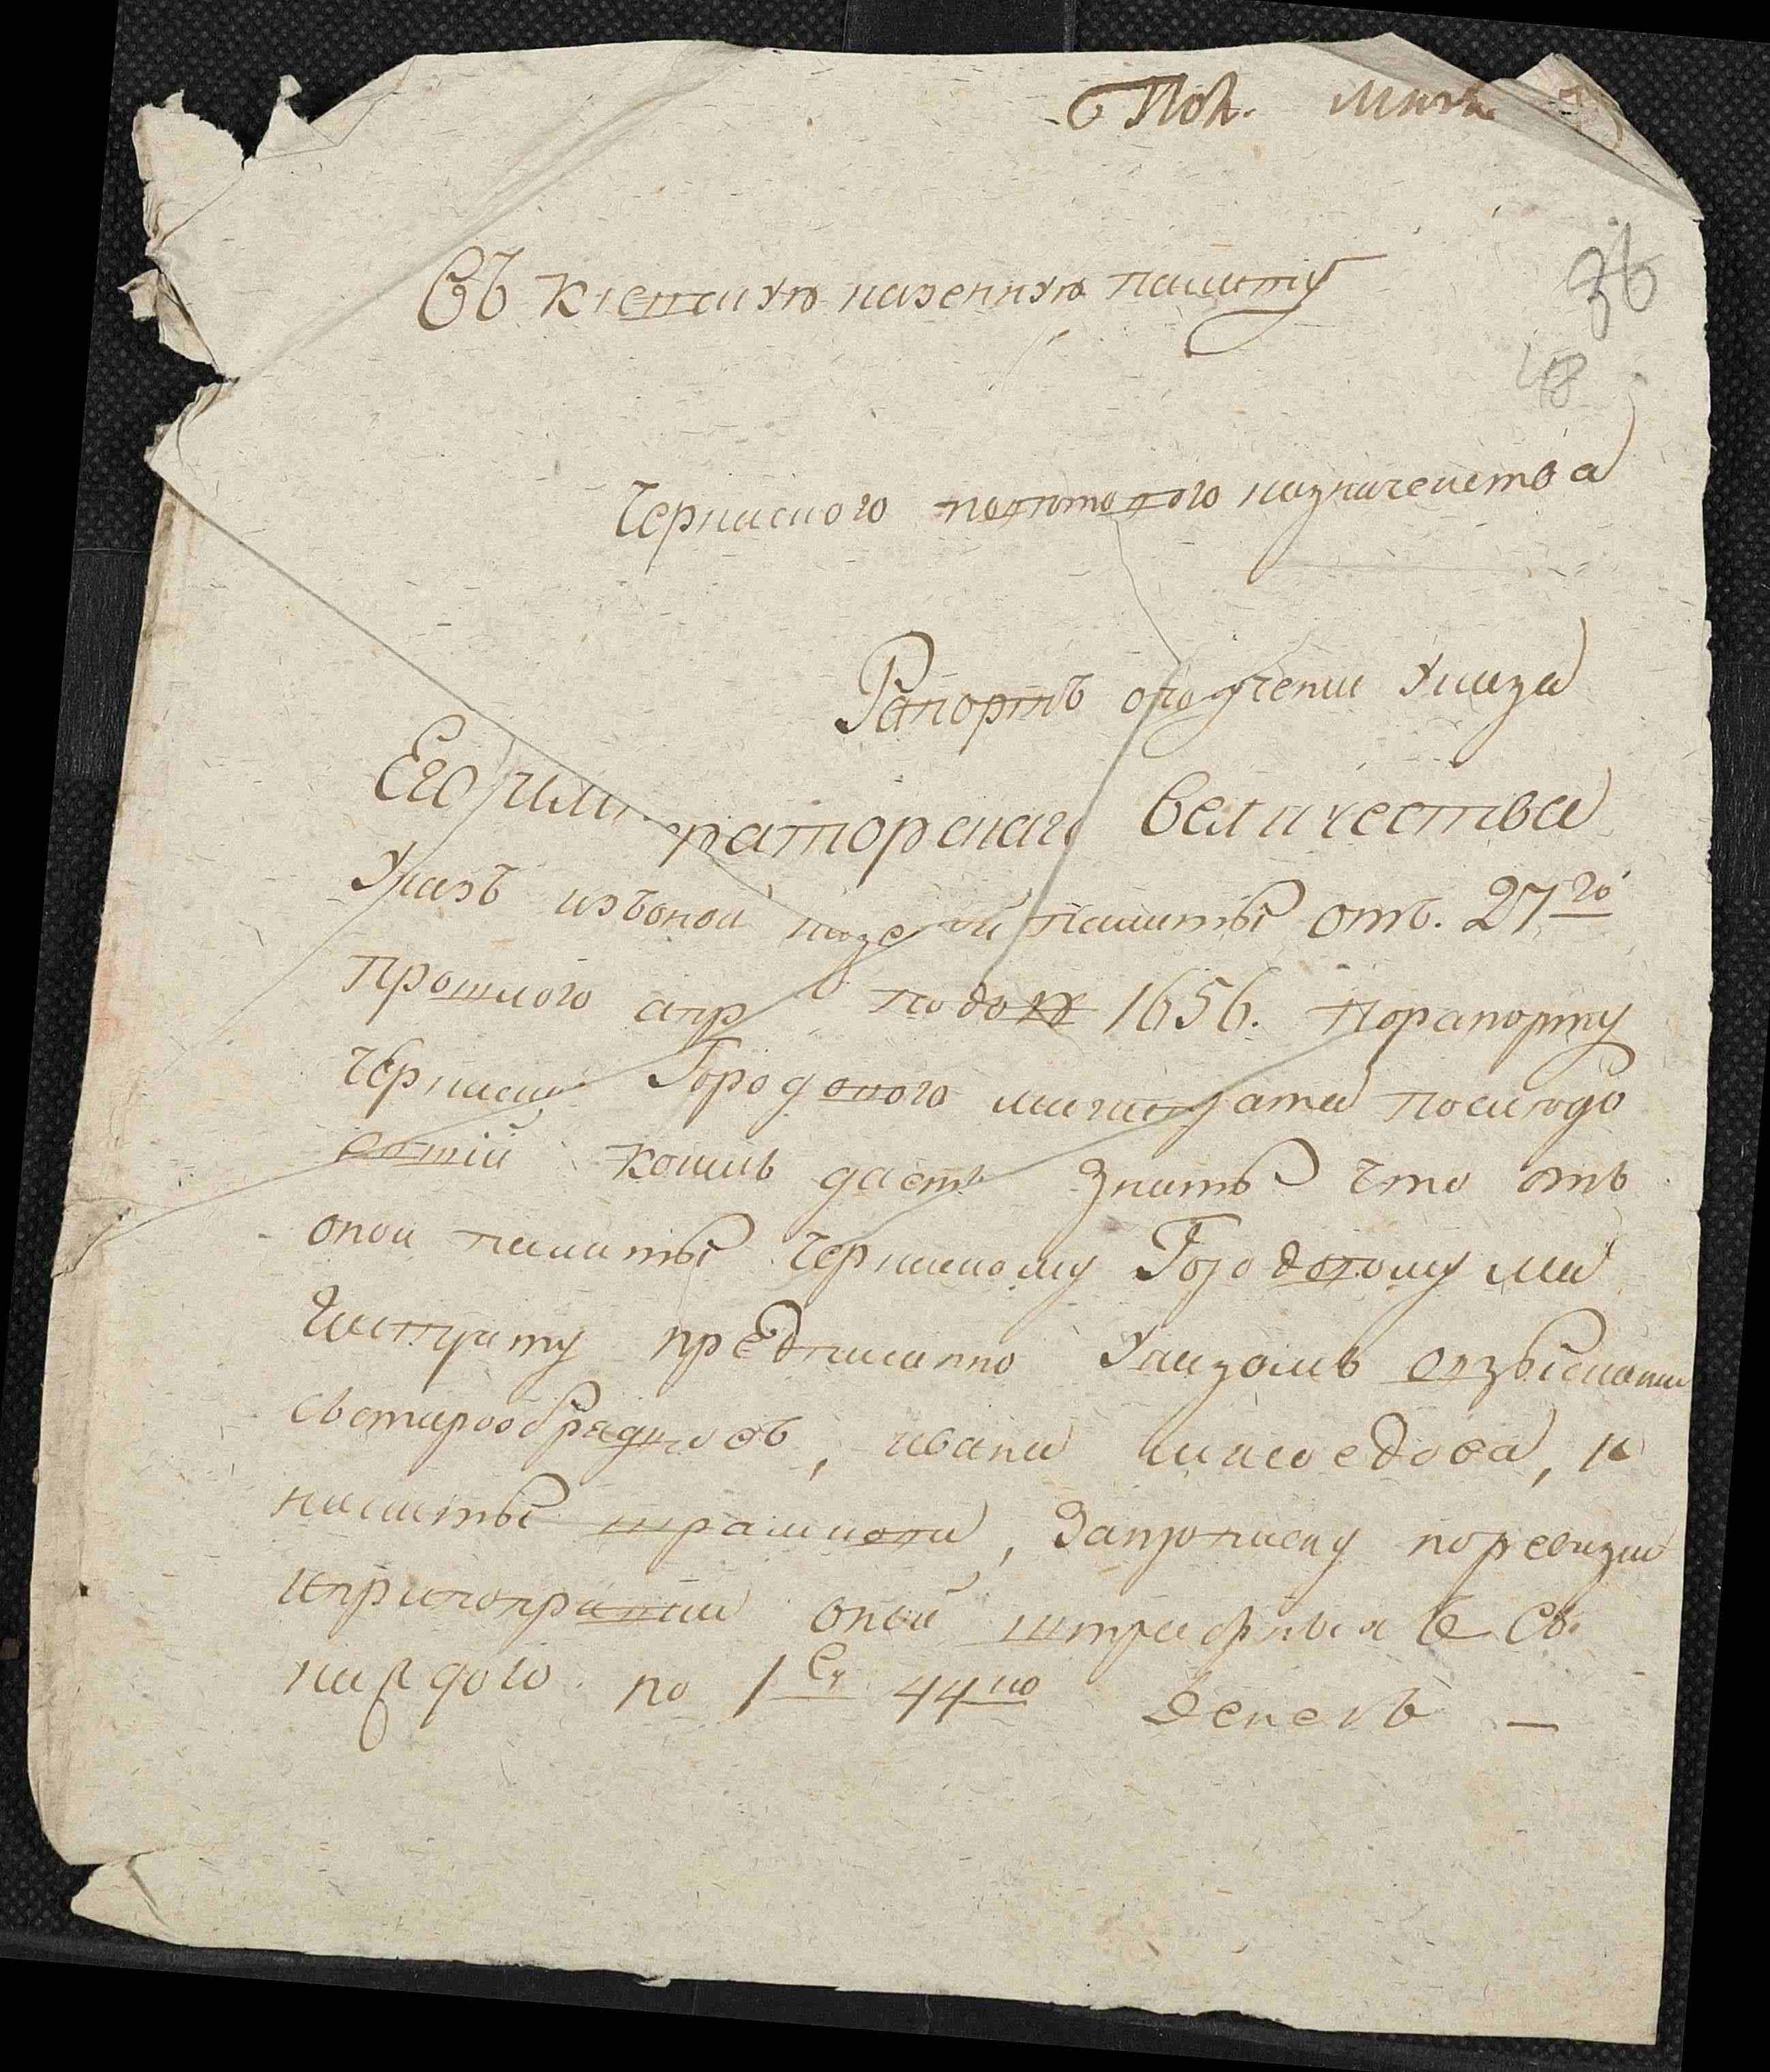 Пол. Маія
Въ киевскую казенную палату
36
48
Черкаского поветового казначейства
Рапортъ ополучении указа
Его Императорскаго Величества
Указъ изъоной казеной палаты отъ. 27го
прошлого апр подъ № 1656. порапорту
Черкаска Городового магистрата последо
вашій коимъ даетъ знать что отъ
оной палаты Черкаскому Городовому ма
гистрату предписанно Указомъ овзыскании
състарообрядцовъ, ивана мясоедова, и
никиты, Запрописку поревизии
иприповерании оной штрафныхъ Съ
каждого по 1 ру 44 ко денегъ —